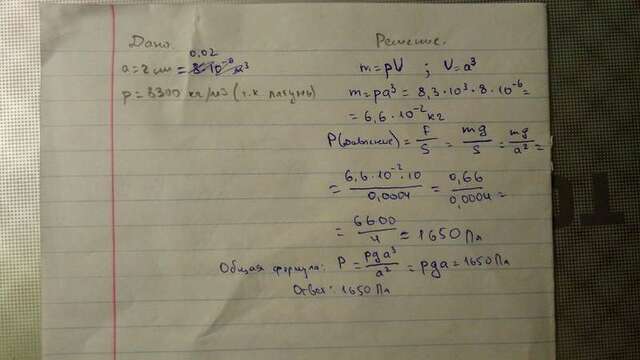 Дано
Решение.
0.02
a = 2 см = 8·10⁻⁶ м³
ρ = 8300 кг/м3 (т.к латунь)
m = ρV ; V = a³
m = ρa³ = 8,3·10³·8·10⁻⁶ =
= 6,6·10⁻² кг
P(давление) = F/S = mg/S = mg/a² =
= 6,6·10⁻²·10/0,0004 = 0,66/0,0004 =
= 6600/4 = 1650 Па
Общая формула: P = ρga³/a² = ρga = 1650 Па
Ответ: 1650 Па